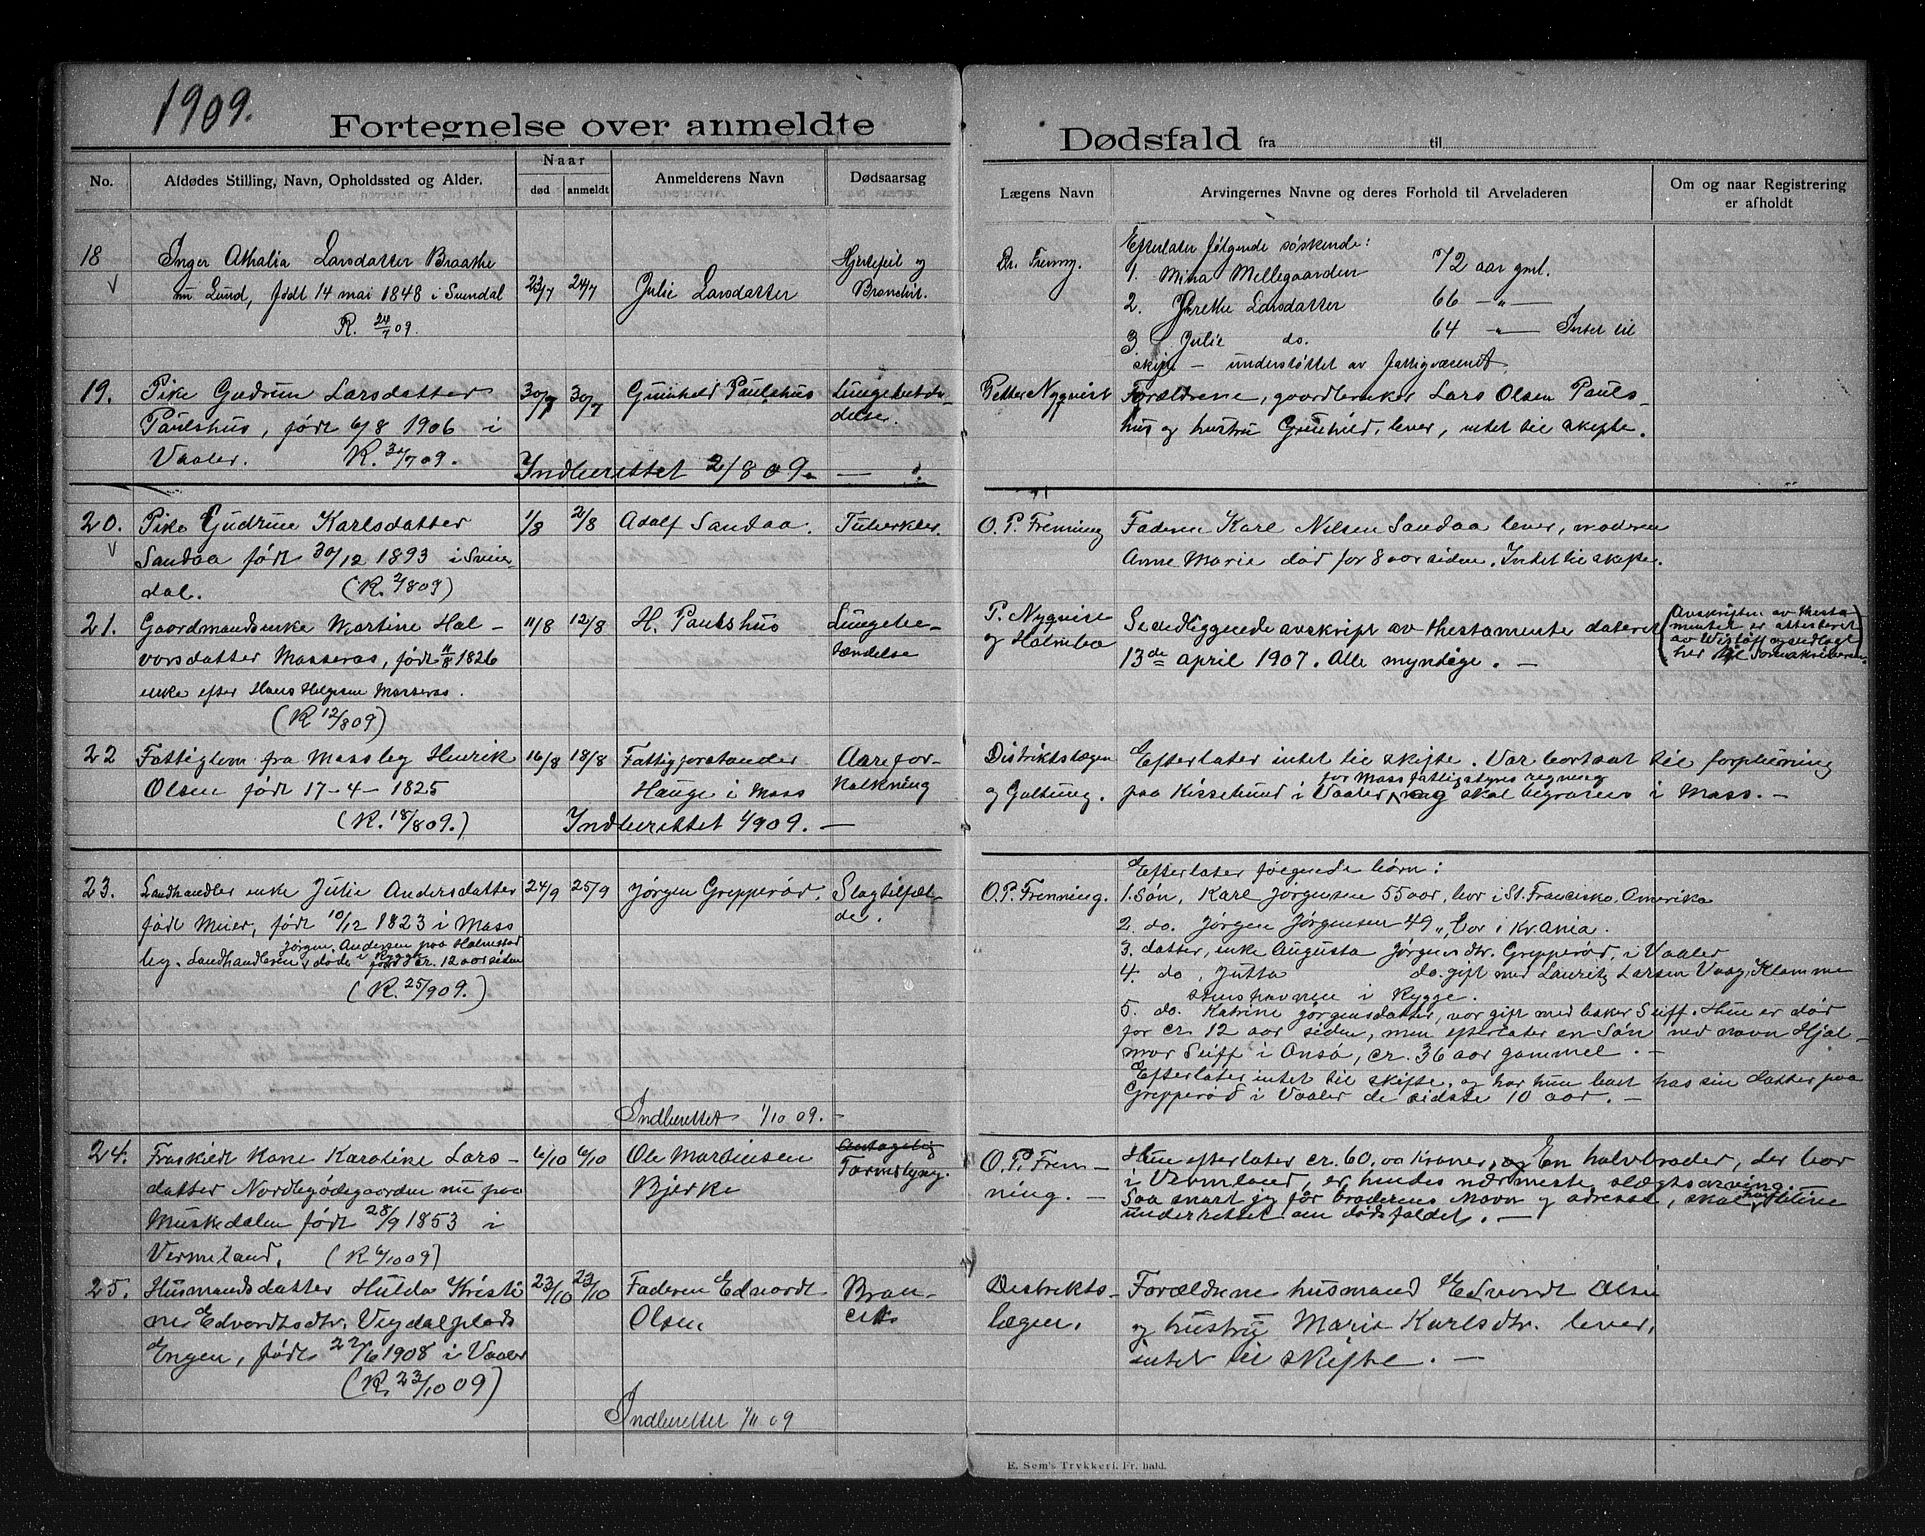 1909.
Fortegnelse over anmeldte
Dødsfald fra til
No.
Afdødes Stilling, Navn, Opholdssted og Alder.
Naar
død
anmeldt
Anmelderens Navn
Dødsaarsag
Lægens Navn
Arvingernes Navne og deres Forhold til Arveladeren
Om og naar Registrering
er afholdt
18
Inger Athalia Larsdatter Braathe
nu Lund, født 14 mai 1848 i Svindal
R. 24/7 09.
23/7
24/7
Julie Larsdatter
Hjertefeil og
Bronchit.
Dr. Frenng.
Efterlater følgende søskende:
1. Mina Mellegaarden 72 aar gml.
2. Grethe Larsdatter 66 -"-
3. Julie do. 64 -"- Intet til
skifte - understøttet av fattigvæsenet
19.
Pike Gudrun Larsdatter
Paulshus, født 6/8 1906 i
Vaaler. R. 30/7 09.
30/7
30/7
Gunhild Paulshus
Lungebetæn-
delse.
Petter Nyqvist
Forældrene, gaardbruker Lars Olsen Pauls-
hus og hustru Gunhild, lever, intet til skifte.
Indberettet 2/8 09. -
20.
Pike Gudrun Karlsdatter
Sandaa født 30/12 1893 i Svin-
dal. (R. 2/8 09)
1/8
2/8
Adolf Sandaa.
Tuberkler.
O. P. Frenning
Faderen Karl Nilsen Sandaa lever, moderen
Anne Marie død for 8 aar siden. Intet til skifte.
21.
Gaardmandsenke Martine Hal-
vorsdatter Masseras, født 11/8 1826
enke efter Hans Helgesen Masseras.
(R 12/8 09)
11/8
12/8
H. Paulshus
Lungebe-
tændelse
P. Nyqvist
og Holmboe
Se vedliggende avskrift av thestamente dateret
13de april 1907. Alle myndige. -
(Avskriften av thesta-
mentet er attesteret
av Wistoff og
her til Sorenskriveren
22
Fattiglem fra Moss by Henrik
Olsen født 17-4-1825
(R. 18/8 09.)
16/8
18/8
Fattigforstander
Hauge i Moss
Aarefor-
kalkning
Distriktslægen
og Galtung.
Efterlater intet til skifte. Var bortsat til forpleining
for Moss fattigstyres regning
paa Kissehund i Vaaler, og skal begraves i Moss. -
Indberettet 4 9 09. -
23.
Landhandler enke Julie Andersdatter
født Meier, født 10/12 1823 i Moss
Jørgen Andersen paa Halmstad
by. Landhandleren, døde i Rygge for cr. 12 aar siden
(R. 25/9 09.)
24/9
25/9
Jørgen Grepperød.
Slagtilfæl-
de.
O. P. Frenning.
Efterlater følgende børn:
1. Søn, Karl Jørgensen 55 aar, bor i St. Francisko, Amerika
2. do. Jørgen Jørgensen 49 " bor i Kr.ania.
3. datter, enke Augusta Jørgensdtr. Grepperød, i Vaaler
4. do, Jutta do. gift med Lauritz Larsen Vaag, Klamme
stenshavnen i Rygge.
5. do. Katrine Jørgensdatter, var gift med baker Seiff. Hun er død
for cr. 12 aar siden, men efterlater en Søn ved navn Hjal-
mar Seiff i Onsø, cr. 36 aar gammel. -
Efterlater intet til skifte, og har hun bodt hos sin datter paa
Grepperød i Vaaler de sidste 10 aar. -
Indberettet 1/10 09. -
24.
Fraskildt Kone Karoline Lars-
datter Nordbygdegaarden nu paa
Muskedalen født 28/9 1853 i
Vermeland. (R 6/10 09)
6/10
6/10
Ole Martinsen
Bjerke
Antagelig
Tarmslyng.
O. P. Fren-
ning. -
Hun efterlater cr. 60,00 kroner, og En halvbroder, der bor
i Vermland, er hendes nærmeste slægtsarving.
Saa snart jeg får broderens Navn og adresse, skal
underrettet om dødsfaldet. -
25.
Husmandsdatter Hulda Kristi
ne Edvardtsdtr. Vegdalplads
Engen, født 22/6 1908 i Vaaler
(R. 23/10 09)
23/10
23/10
Faderen Edvardt
Olsen
Bron-
cit
Distrikts-
lægen.
Forældrene husmand Edvardt Olsen
og hustru Marie Karlsdtr. lever,
intet til skifte. -
Indberettet 1/11 09
E. Sem's Trykkeri, Fr. hald.